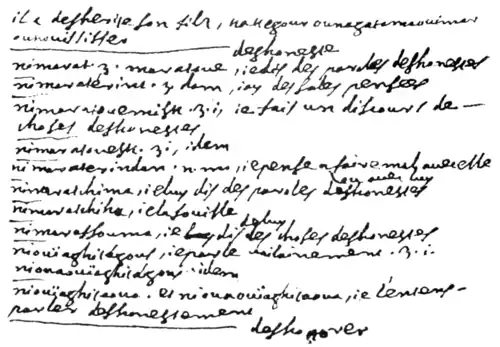 il a desherité son filz, nategour ounagatamaouimar
ounouillitter
deshoneste
nimarat. 3. maratoue, ie dis des paroles deshonestes
nimaraterint. 3 dam, iay des sales pensées
nimaratouemisk. 3. i, ie fais un discours de-
choses deshonestes
nimaratouesk. 3. i, idem
nimaraterindam. n. mi, ie pense a faire mal avec elle
ou avec luy
nimaratchima, ie luy dis des paroles deshonestes
nimaratchiha, ie la fouille
nimarassouma, ie dis des choses deshonestes
de luy
niouiaghisagous, ie parle vilainement. 3. i.
niouaouiaghisagous. idem
niouiaghisaoua. et niouaouiaghisaoua, ie l'entens-
parler deshonestement
deshonorer